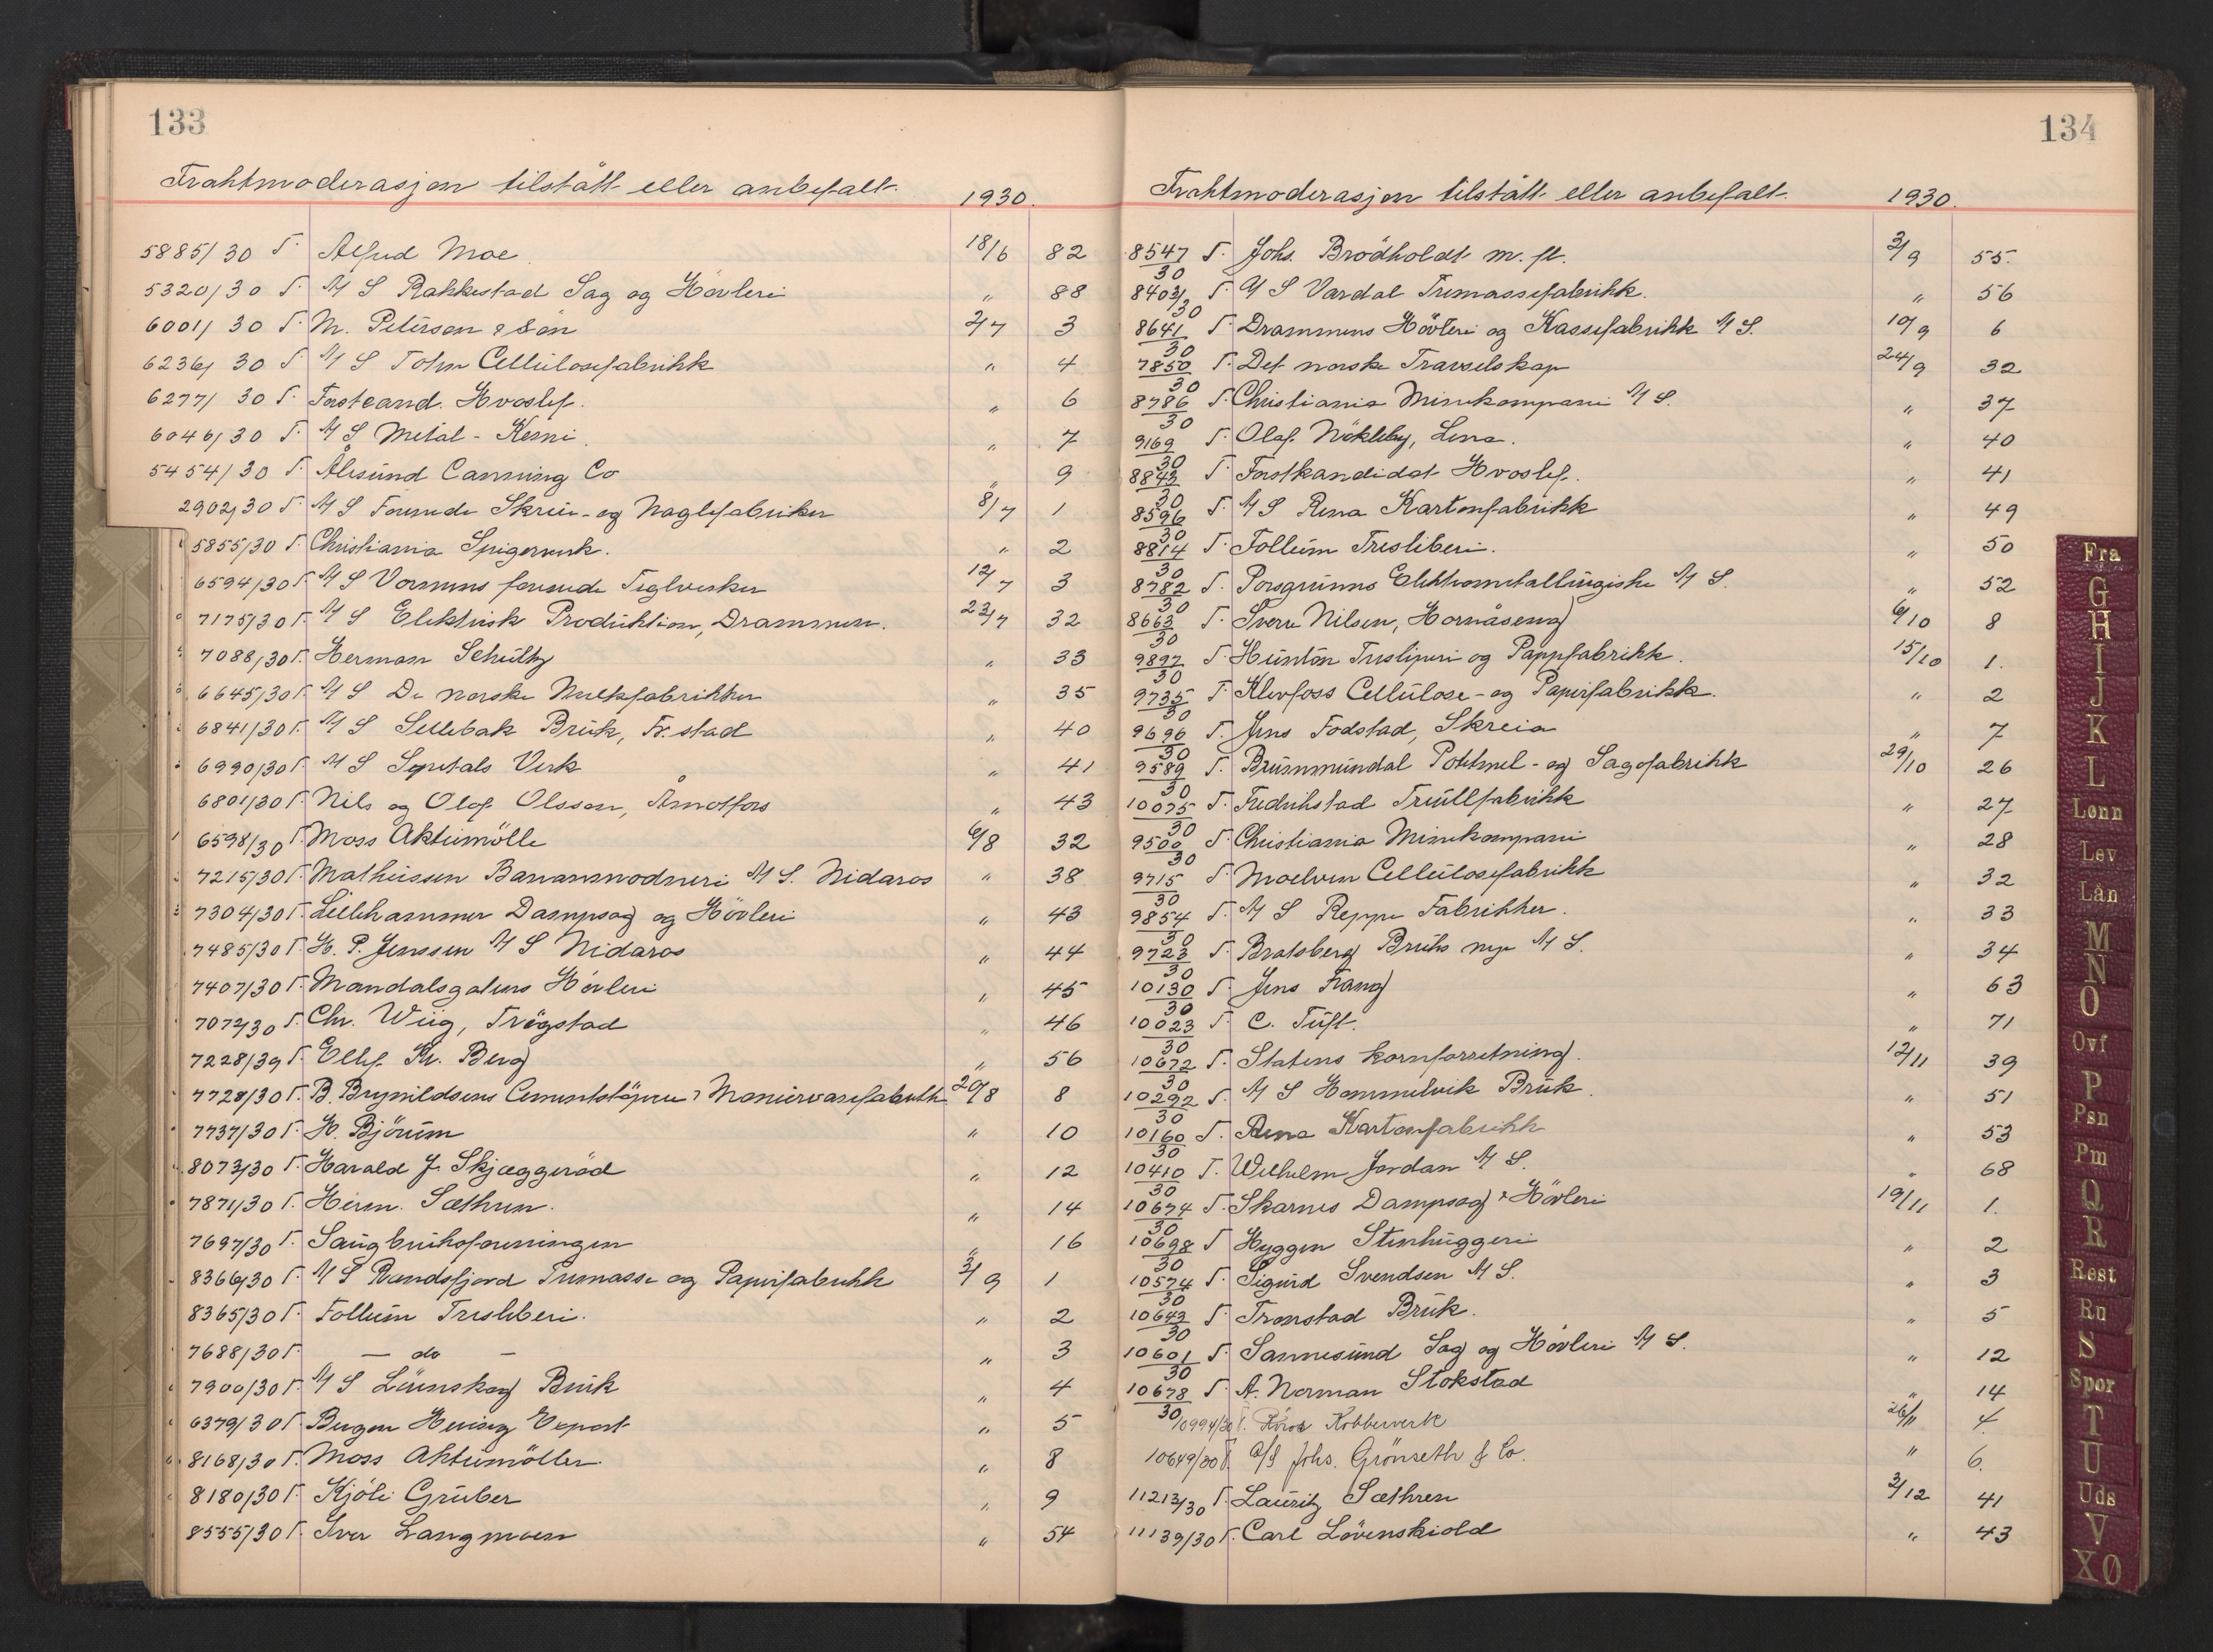 133
Frahtmoderasjon tilstått eller anbefalt. 1930.
5885/30 T. Alfred Moe. 18/6 82
5320/30 T. A/S Rakkestad Sag og Hövleri " 88
6001/30 T. M. Petersen & Sön 2/7 3
6236/30 T. A/S Toten Cellulosefabrikk " 4
6277/30 T. Forstcand. Hvoslef. " 6
6046/30 T. A/S Metal-Kemi. " 7
5454/30 T. Ålesund Canning Co " 9
2902/30 T. A/S Forenede Skrue- og Naglefabriker 8/7 1
5855/30 T. Christiania Spigerverk. " 2
6594/30 T. A/S Vormens forenede Teglverker 12/7 3
7175/30 T. A/S Elektrisk Produktion, Drammen. 23/7 32
7088/30 T. Herman Schultz " 33
6645/30 T. A/S De norske Melkfabrikker " 35
6841/30 T. A/S Sellebak Bruk, Fr.stad " 40
6990/30 T. A/S Lyretals Verk " 41
6801/30 T. Nils og Olof Olsson, Åmotfors " 43
6598/30 T. Moss Aktiemölle 6/8 32
7215/30 T. Matheussen Bananmodneri A/S. Nidaros " 38
7304/30 T. Lillehammer Dampsag og Hövleri " 43
7485/30 T. H. P. Jenssen A/S Nidaros " 44
7407/30 T. Mandalsgatens Hövleri " 45
7072/30 T. Chr. Wiig, Trögstad " 46
7228/39 T. Ellef Kr. Berg " 56
7728/30 T. B. Brynildsens Cementstöperi & Moniervarefabrikk 20/8 8
7737/30 T. H. Björum " 10
8073/30 T. Harald J. Skjæggeröd " 12
7871/30 T. Herm. Sæthren. " 14
7697/30 T. Saugbruksforeningen " 16
8366/30 T. A/S Randsfjord Tremasse og Papirfabrikk 3/9 1
8365/30 T. Follum Tresliberi. " 2
7688/30 T. — do — " 3
7900/30 T. A/S Lörenskog Bruk " 4
6379/30 T. Bergen Hering Export " 5
8168/30 T. Moss Aktiemöller. " 8
8180/30 T. Kjöli Gruber " 9
8555/30 T. Iver Langmoen " 54
134
Frahtmoderasjon tilstått eller anbefalt. 1930.
8547/30 T. Johs. Brödholdt m. fl. 3/9 55.
8403/30 T. A/S Vardal Tremassefabrikk. " 56
8641/30 T. Drammens Hövleri og Kassefabrikk A/S. 10/9 6
7850/30 T. Det norske Travselskap 24/9 32
8786/30 T. Christiania Minekompani A/S. " 37
9169/30 T. Olaf Nökleby, Lena. " 40
8843/30 T. Forstkandidat Hvoslef. " 41
8596/30 T. A/S Rena Kartonfabrikk " 49
8814/30 T. Follum Tresliberi. " 50
8782/30 T. Porsgrunns Elektrometallurgiske A/S. " 52
8663/30 T. Sverre Nilsen, Hornåseng 6/10 8
9897/30 T. Hunton Tresliperi og Pappfabrikk. 15/10 1.
9735/30 T. Klevfoss Cellulose- og Papirfabrikk. " 2
9696/30 T. Jens Fodstad, Skreia " 7
9589/30 T. Brummundal Potetmel- og Sagofabrikk 29/10 26
10075/30 T. Fredrikstad Trullfabrikk " 27
9500/30 T. Christiania Minekompani " 28
9715/30 T. Moelven Cellulosefabrikk " 32
9854/30 T. A/S Reppe Fabrikker. " 33
9723/30 T. Bratsberg Bruks nye A/S. " 34
10130/30 T. Jens Frang " 63
10023/30 T. C. Tuft. " 71
10672/30 T. Statens kornforretning. 12/11 39
10292/30 T. A/S Hommelvik Bruk. " 51
10160/30 T. Rena Kartonfabrikk " 53
10410/30 T. Wilhelm Jordan A/S. " 68
10674/30 T. Skarnes Dampsag & Hövleri 19/11 1.
10698/30 T. Hyggen Stenhuggeri " 2
10574/30 T. Sigurd Svendsen A/S. " 3
10643/30 T. Tronstad Bruk. " 5
10601/30 T. Sannesund Sag og Hövleri A/S. " 12
10678/30 T. A. Norman Stokstad " 14
10994/30 T. Röros Kobberverk 26/11 4.
10649/30 T. A/S Johs. Grönseth & Co. " 6.
11213/30 T. Lauritz Sæthren 3/12 41
11139/30 T. Carl Lövenskiold " 43
Fra
G
H
I
J
K
L
Lønn
Lev
Lån
M
N
O
Ovf
P
Psn
Pm
Q
R
Rest
Ru
S
Spor
T
U
Uds
V
XØ